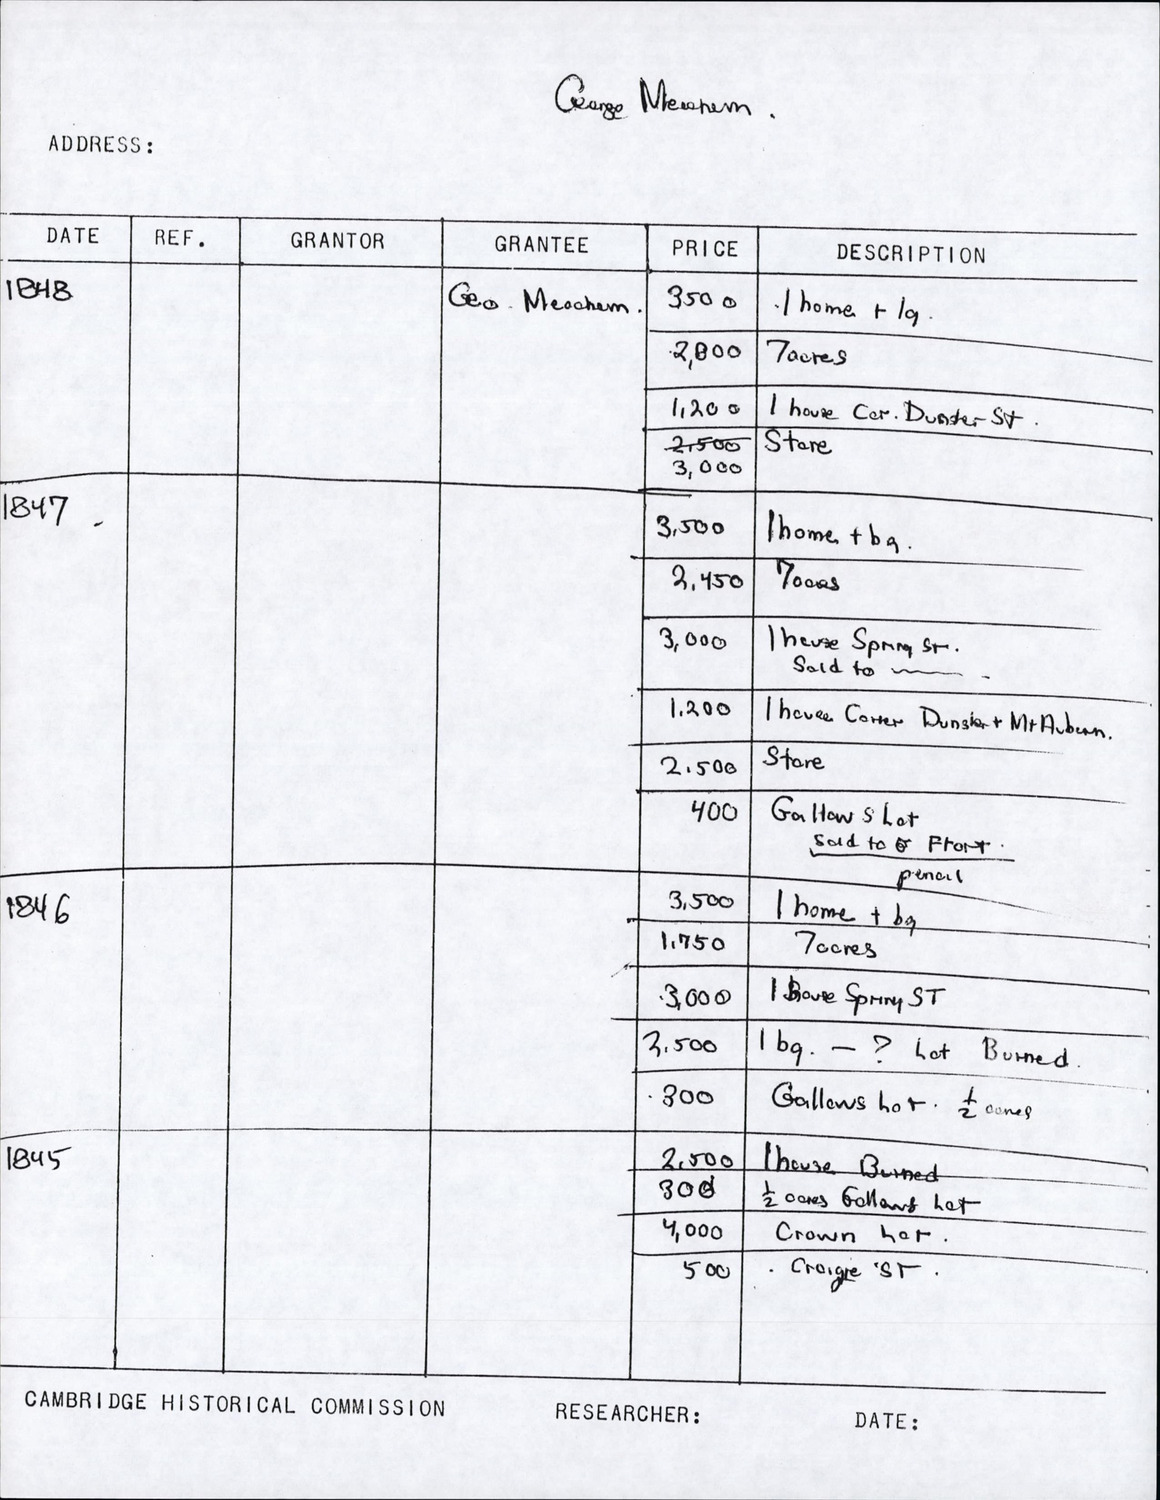 George Meachem.
ADDRESS:
DATE REF. GRANTOR GRANTEE PRICE DESCRIPTION
1848 Geo. Meachem. 3500 1 home + lq.
2,800 7acres
1,200 1 house Cor. Dunster St.
2,500 Store
3,000
1847 3,500 1 home + bq.
2,450 7acres
3,000 1 house Spring St.
Sold to
1.200 1 house Corner Dunster + Mt Auburn.
2.500 Store
400 Gallows Lot
Sold to
pencil
1846 3,500 1 home + bq
1.750 7acres
3,000 1 house Spring ST
1 bq. — ? Lot Burned.
300 Gallows Lot. 1/2 acres
1845 2,500 1 house Burned
300 1/2 acres Gallows Lot
4,000 Crown Lot.
500 Craigie ST.
CAMBRIDGE HISTORICAL COMMISSION RESEARCHER: DATE: